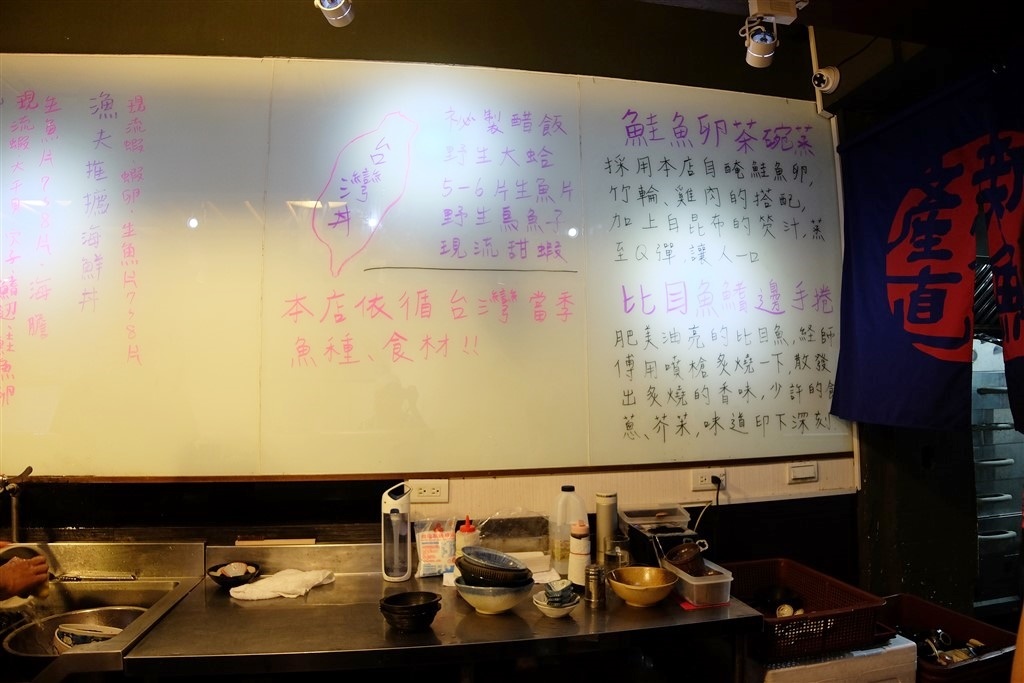 現流蝦、蝦卵、生魚片7~8片
漁夫推摭海鮮丼
生魚片7~8片、海膽
台灣丼
祕製醋飯
野生大蛤
5-6片生魚片
野生烏魚子
現流甜蝦
本店依循台灣當季
魚種、食材!!
鮭魚卵茶碗蒸
採用本店自醃鮭魚卵,
竹輪、雞肉的搭配,
加上自昆布的熒汁,蒸
至Q彈,讓人一口
比目魚鰭邊手捲
肥美油亮的比目魚,經師
傅用噴槍炙燒一下,散發
出炙燒的香味,少許的
蔥、芥茉,味道印下深刻
新鮮
產直